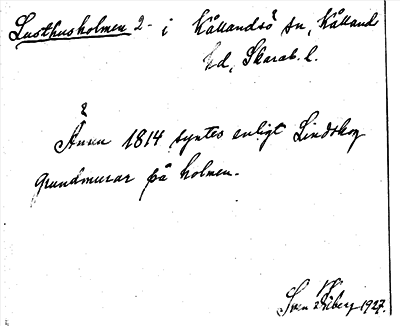 Lusthusholmen 2- i Kållandsö sn, Kålland
hd, Skarab. l.
Ännu 1814 syntes enligt Lindskog
grundmurar på holmen.
Sven 1927.